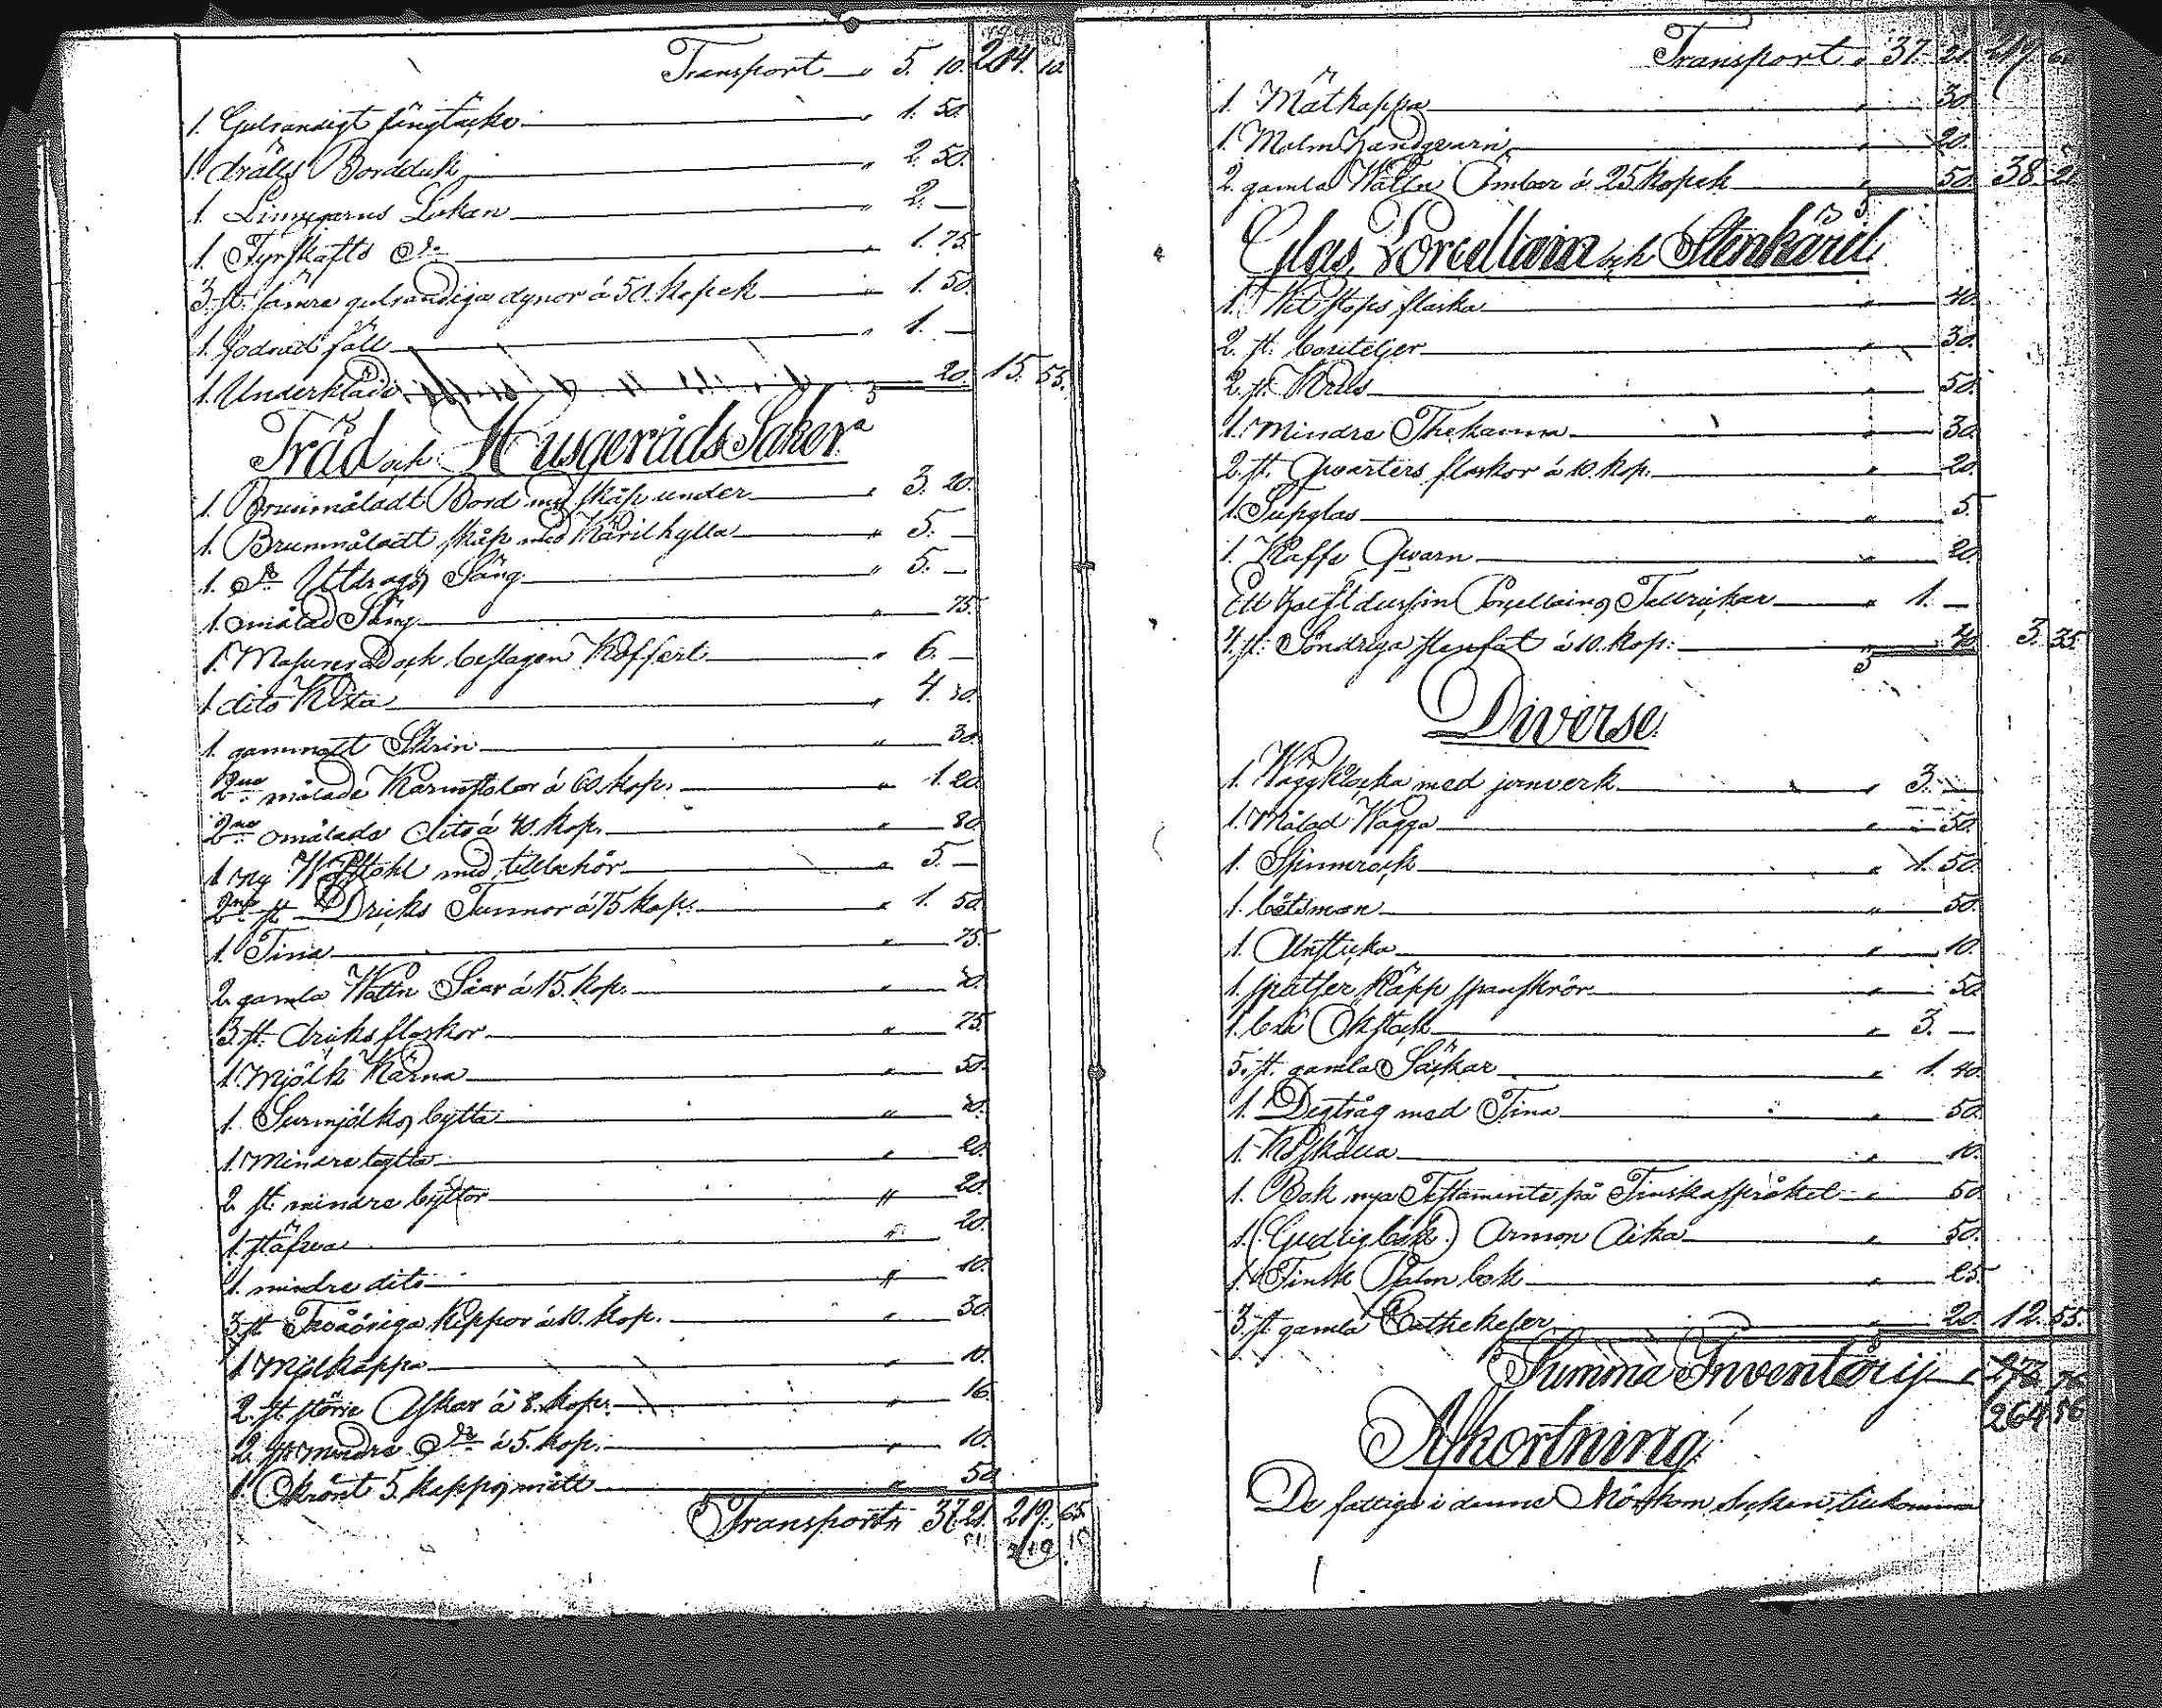 Transport " 5. 10. 204. 10.
1. Gulrandigt sängtäcke " 1. 50.
1 dräll Bordduk " 2. 50.
1 Linnegarns Lakan " 2. —
1 Fyrskafts do " 1. 75.
3. st. sämre gulrandiga dynor á 50. kopek " 1. 50.
1. fodrad fäll " 1. —
1. Underkläde 20. 15. 55.
Träd och Husgeråds Saker
1. Brunmåladt Bord med skåp under " 3. 20.
1. Brunmåladt skåp med Kärilhylla " 5. —
1. do Utdrags Säng " 5. —
1. omålad Säng " 75.
1. Masurerad och beslagen Koffert " 6. —
1 dito Kista " 4.
1. gammalt Skrin " 30.
2ne målade Karmstolar á 60. kop. " 1. 20.
2ne omålade dito á 40. kop. " 80.
1 ny Wäfstohl med tillbehör " 5. —
2ne st. Dricks Tunnor á 75 kop. " 1. 50.
1 Tina " 75.
2. gamla Wattn Såar á 15. kop. "
3. st. dricks flaskor " 75.
1. Mjölk Kärna " 50.
1. Surmjölks bytta "
1. Mindre bytta " 20.
2. st. mindre byttor " 20.
1. stäfva " 20.
1. mindre dito " 10.
3. st. Tvååriga Kippor á 10. kop. " 30.
1 Mjölkäppa " 10.
2. st. större Askar á 8. kop. " 16.
2. st. mindre do á 5. kop. " 10.
1. Okrönt 5. kapps mått " 50.
Transport " 37. 21. 219. 65.
Transport " 37. 21. 219. 65
1. Mätkappa " 30.
1. Malm Handqvarn " 20.
2. gamla Wattn Ämbar á 25 kopek " 50. 38. 21.
Glas, Porcellain och Stenkäril
1. Hel stops flaska " 40.
2. st. bouteljer " 30.
2. st. Krus " 50.
1. Mindre Thekanna " 30.
2. st. Qvarters flaskor á 10. kop. " 20.
1. Supglas " 5.
1. Kaffe Qvarn " 20.
Ett halft dussin Porcellains Tallrickar " 1. —
4. st. Söndriga stenfat á 10. kop. " 40. 3. 35.
Diverse
1. Väggklocka med jernverk " 3. —
1. Målad Wagga " 50.
1. Spinnrock " 1. 50.
1. båtsman " 50.
1. " 10.
1. spatser käpp spanskrör " 50.
1. Okstock " 3. —
5. st. gamla Säckar " 1. 40.
1. Degtråg med Tina " 50.
1. " 10.
1. Bok nya Testamente på Finska språket " 50.
1. (Gudlig bok) Armon Aika " 50.
1. Finsk Psalm bok " 25.
3. st. gamla Cathekeser " 20. 12. 55.
Summa Inventarij " 273 76
264 56
Afkortning!
De fattige i denne Socken tilkomma